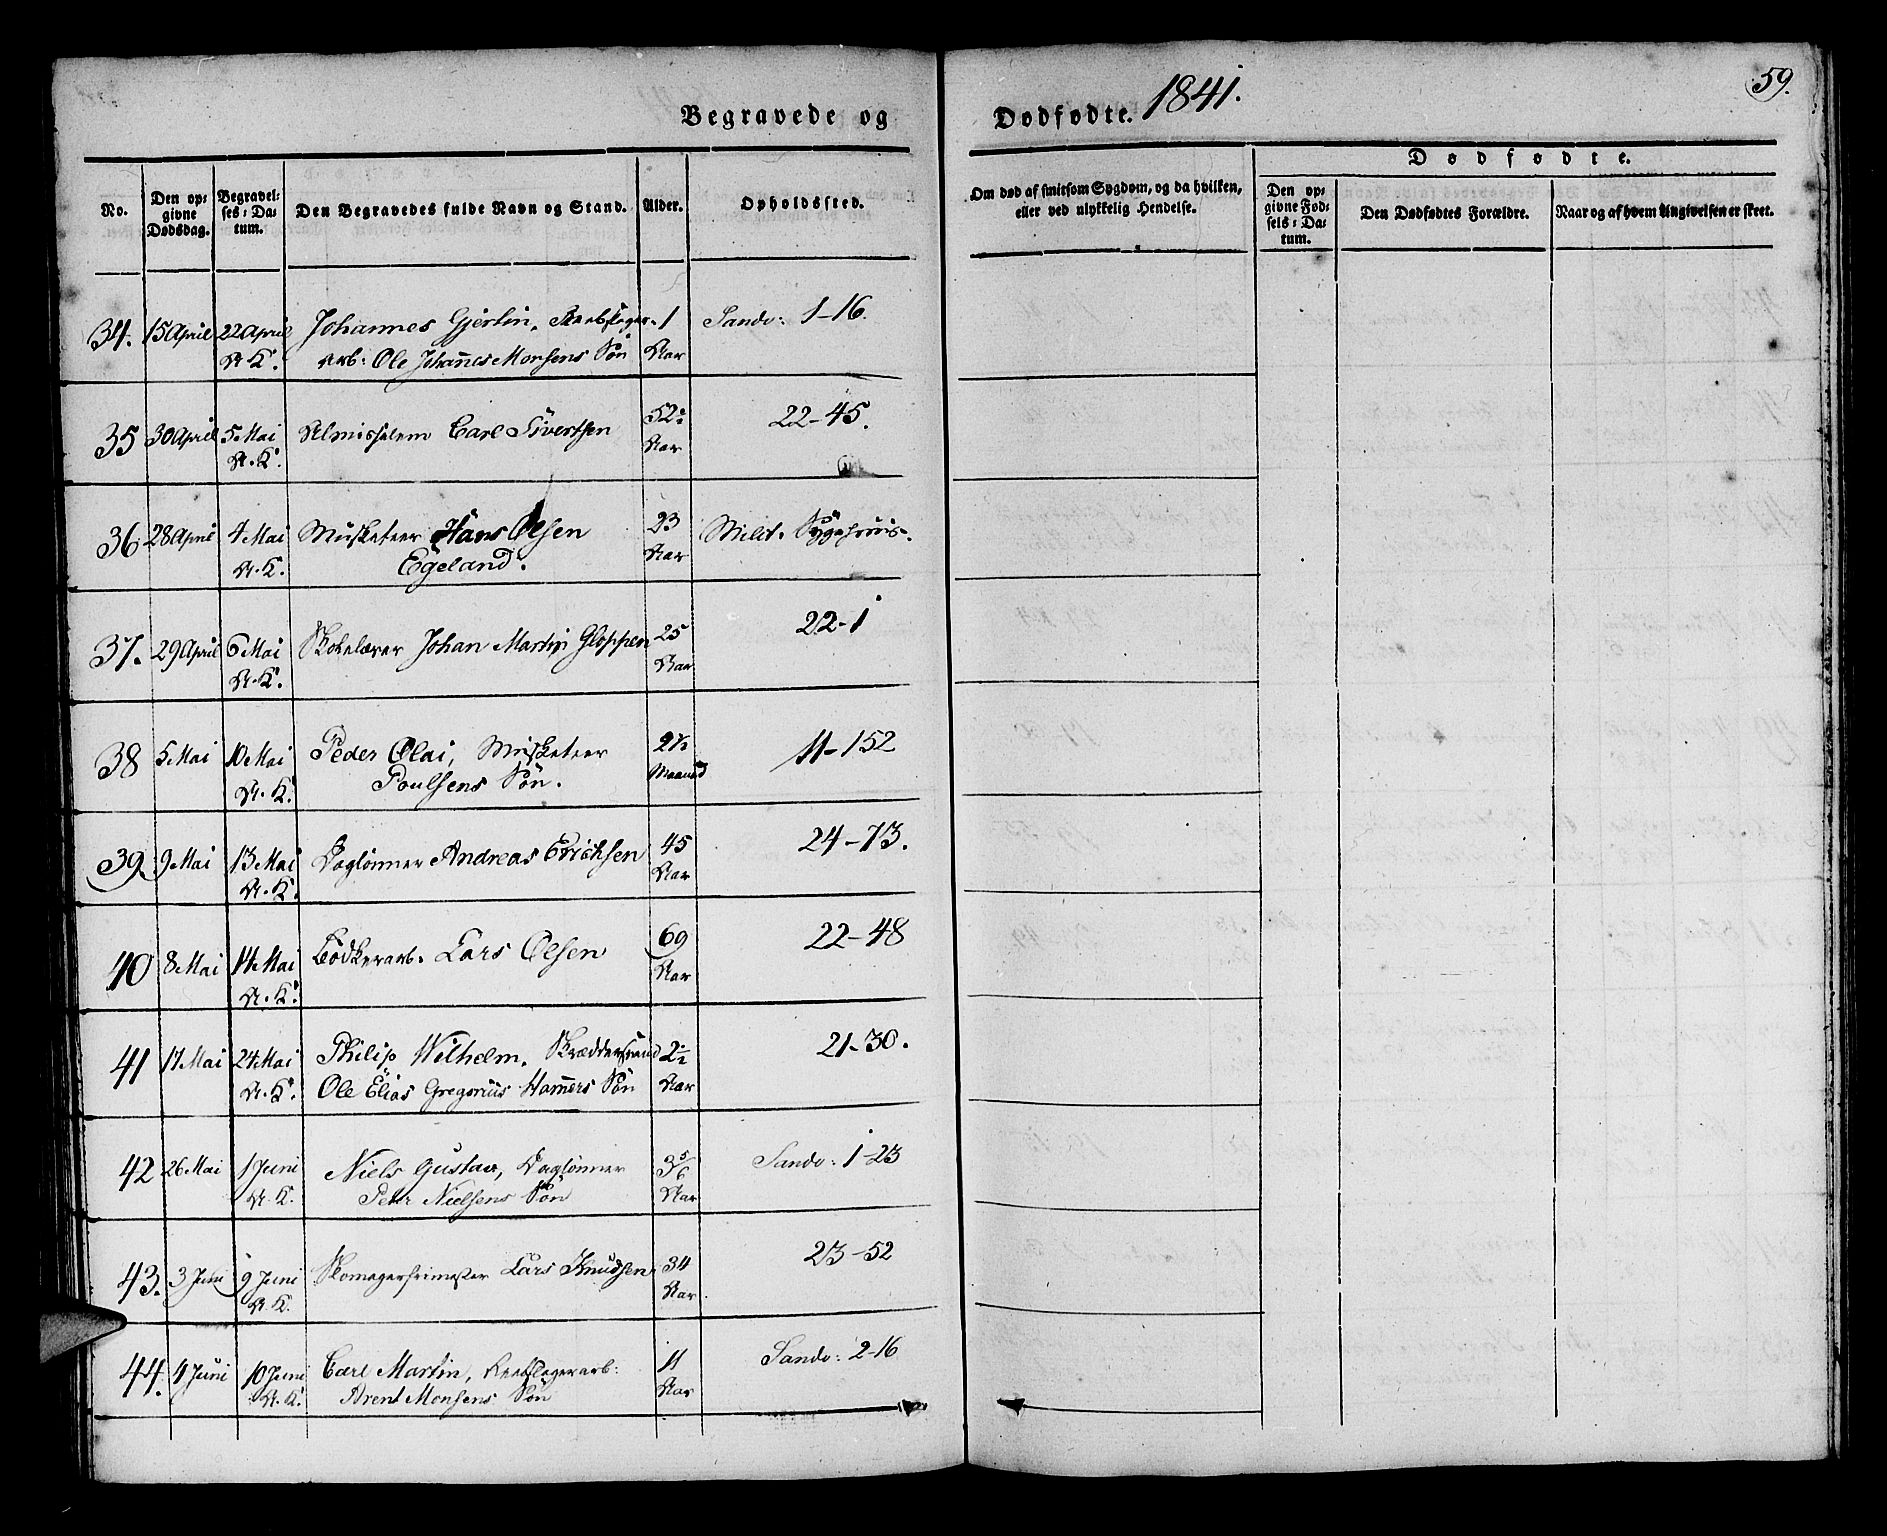 59.
Begravede og Dødfødte. 1841.
No.
Den opgivne Dødsdag.
Begravelses-Datum.
Den Begravedes fulde Navn og Stand.
Alder.
Opholdssted.
Om død af smitsom Sygdom, og da hvilken, eller ved ulykkelig Hendelse.
Dødfødte.
Den opgivne Fødsels-Datum.
Den Dødfødtes Forældre.
Naar og af hvem Angivelsen er skeet.
34. 15 April 22 April Johannes Gjertin, Reebslager- 1 Sandv: 1-16.
A. K. arb: Ole Johannes Monsens Søn Aar
35 30 April 5 Mai Almisselem Carl Sivertsen 52 22-45.
A. K. Aar
36 28 April 4 Mai Musketeer Hans Olsen 23 Milit. Sygehuus.
A. K. Egeland. Aar
37. 29 April 6 Mai Johan Martin Gloppen 25 22-1
A. K. Aar
38 5 Mai 10 Mai Peder Olai, Musketeer 2½ 11-152
A. K. Poulsens Søn. Maaned
39 9 Mai 13 Mai Daglønner Andreas Erichsen 45 24-73.
A. K. Aar
40 8 Mai 14 Mai Bødkerarb. Lars Olsen 69 22-48
A. K. Aar
41 17 Mai 24 Mai Philip Wilhelm. Skræddersvend 2½ 21-30.
A. K. Ole Elias Gregorius Hamers Søn Aar
42 26 Mai 1 Juni Niels Gustav, Daglønner 3 5/6 Sandv: 1-23
A. K. Peter Nielsens Søn Aar
43. 3 Juni 9 Juni Skomagerfrimester Lars Knudsen 34 23-52
A. K. Aar
44. 4 Juni 10 Juni Carl Martin, Reebslagerarb: 11 Sandv: 2-16
A. K. Arent Monsens Søn Aar